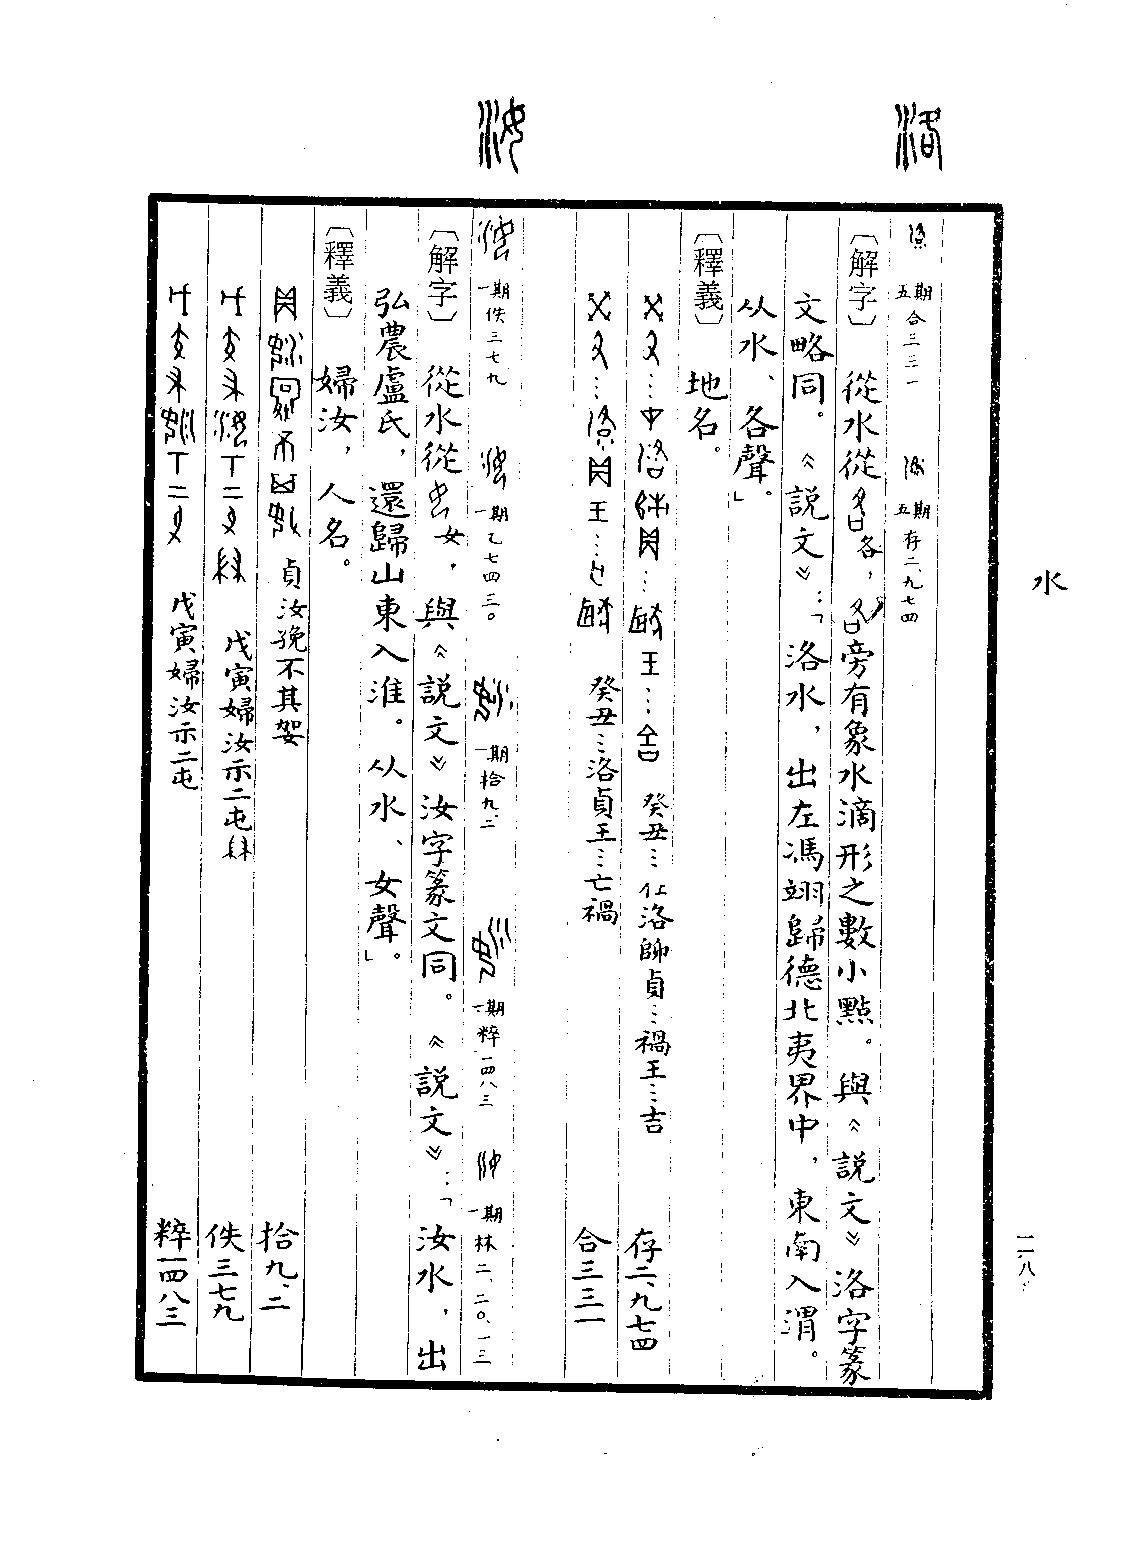 水
一一八
洛
五期 合三三一 五期 存二、九七四
〔解字〕 從水從各，旁有象水滴形之數小點。與《説文》洛字篆
文略同。《説文》：「洛水，出左馮翊歸德北夷界中，東南入渭。
从水、各聲。」
〔釋義〕 地名。
癸丑…在洛𠂤貞…禍王…吉 存二、九七四
癸丑…洛貞王…亡禍 合三三一
汝
一期 佚三七九 一期 乙七四三〇 一期 拾九、二 一期 粹一四八三 一期 林二、二〇、一三
〔解字〕 從水從女，與《説文》汝字篆文同。《説文》：「汝水，出
弘農盧氏，還歸山東入淮。从水、女聲。」
〔釋義〕 婦汝，人名。
貞汝娩不其㚸 拾九、二
戊寅婦汝示二屯 佚三七九
戊寅婦汝示二屯 粹一四八三